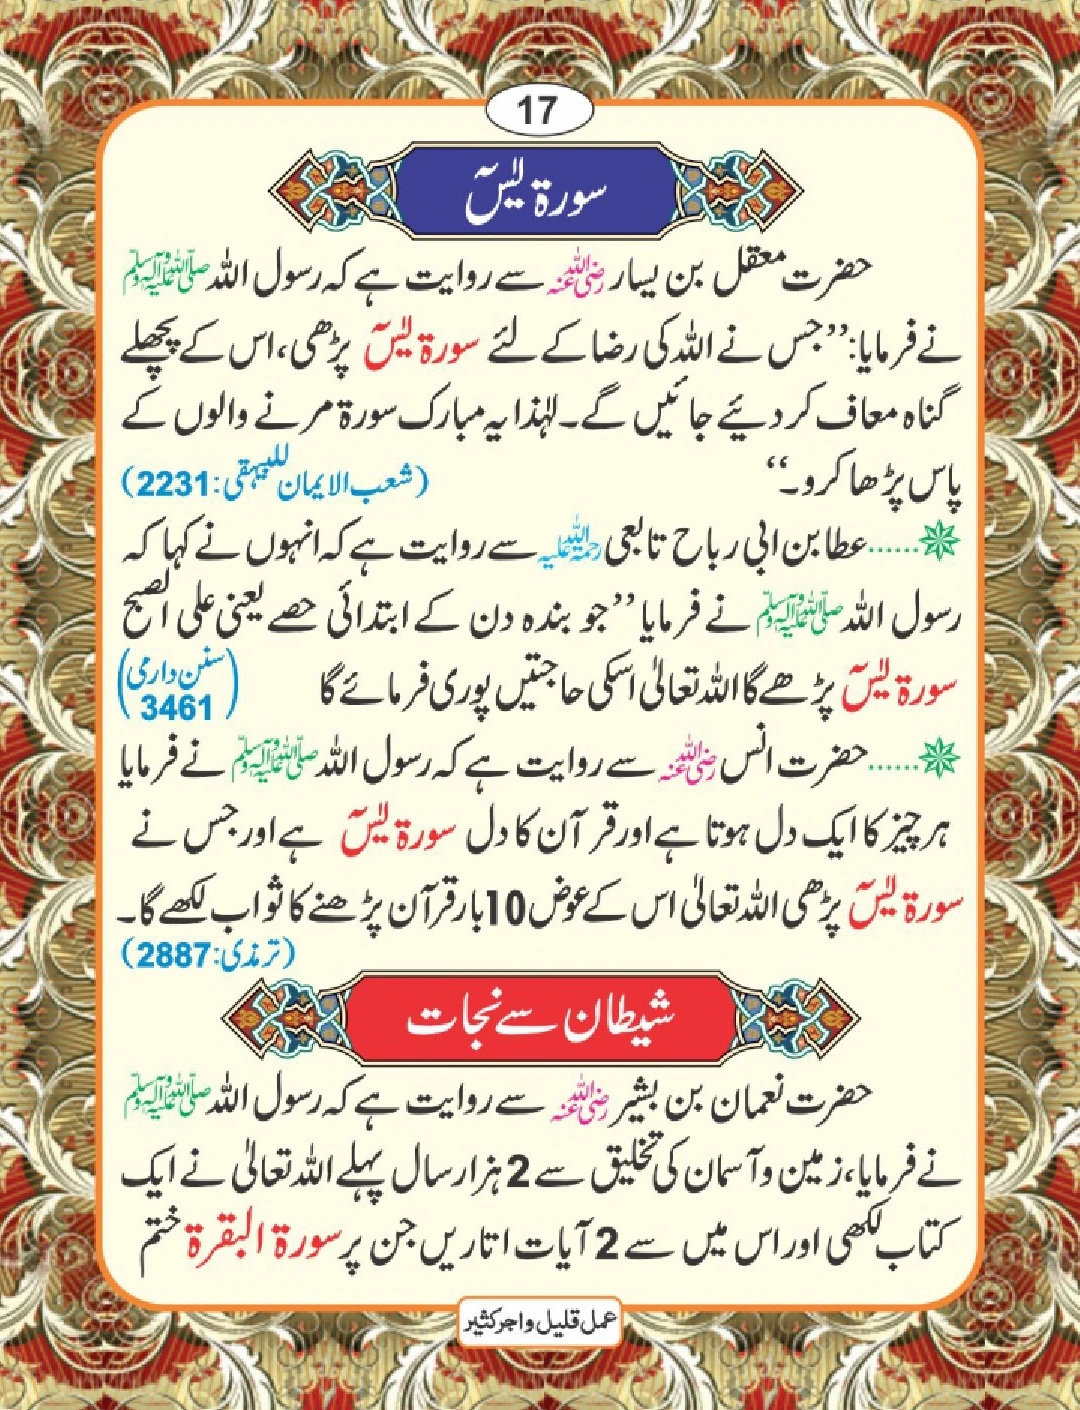 17
سورۃ یٰسٓ
حضرت معقل بن یسار رضی اللہ عنہ سے روایت ہے کہ رسول اللہ صلی اللہ علیہ وآلہ وسلم
نے فرمایا: ’’جس نے اللہ کی رضا کے لئے سورۃ یٰسٓ پڑھی، اس کے پچھلے
گناہ معاف کر دیئے جائیں گے۔ لہٰذا یہ مبارک سورۃ مرنے والوں کے
پاس پڑھا کرو۔‘‘ (شعب الایمان للبیہقی: 2231)
......عطا بن ابی رباح تابعی رحمۃ اللہ علیہ سے روایت ہے کہ انہوں نے کہا کہ
رسول اللہ صلی اللہ علیہ وآلہ وسلم نے فرمایا ’’جو بندہ دن کے ابتدائی حصے یعنی علی الصبح
سورۃ یٰسٓ پڑھے گا اللہ تعالیٰ اسکی حاجتیں پوری فرمائے گا (سنن دارمی 3461)
......حضرت انس رضی اللہ عنہ سے روایت ہے کہ رسول اللہ صلی اللہ علیہ وآلہ وسلم نے فرمایا
ہر چیز کا ایک دل ہوتا ہے اور قرآن کا دل سورۃ یٰسٓ ہے اور جس نے
سورۃ یٰسٓ پڑھی اللہ تعالیٰ اس کے عوض 10 بار قرآن پڑھنے کا ثواب لکھے گا۔
(ترمذی: 2887)
شیطان سے نجات
حضرت نعمان بن بشیر رضی اللہ عنہ سے روایت ہے کہ رسول اللہ صلی اللہ علیہ وآلہ وسلم
نے فرمایا، زمین و آسمان کی تخلیق سے 2 ہزار سال پہلے اللہ تعالیٰ نے ایک
کتاب لکھی اور اس میں سے 2 آیات اتاریں جن پر سورۃ البقرۃ ختم
عمل قلیل و اجر کثیر